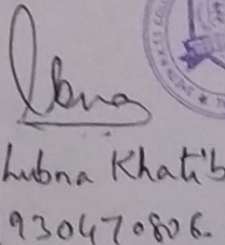 Lubna
Lubna Khatib
930470806.